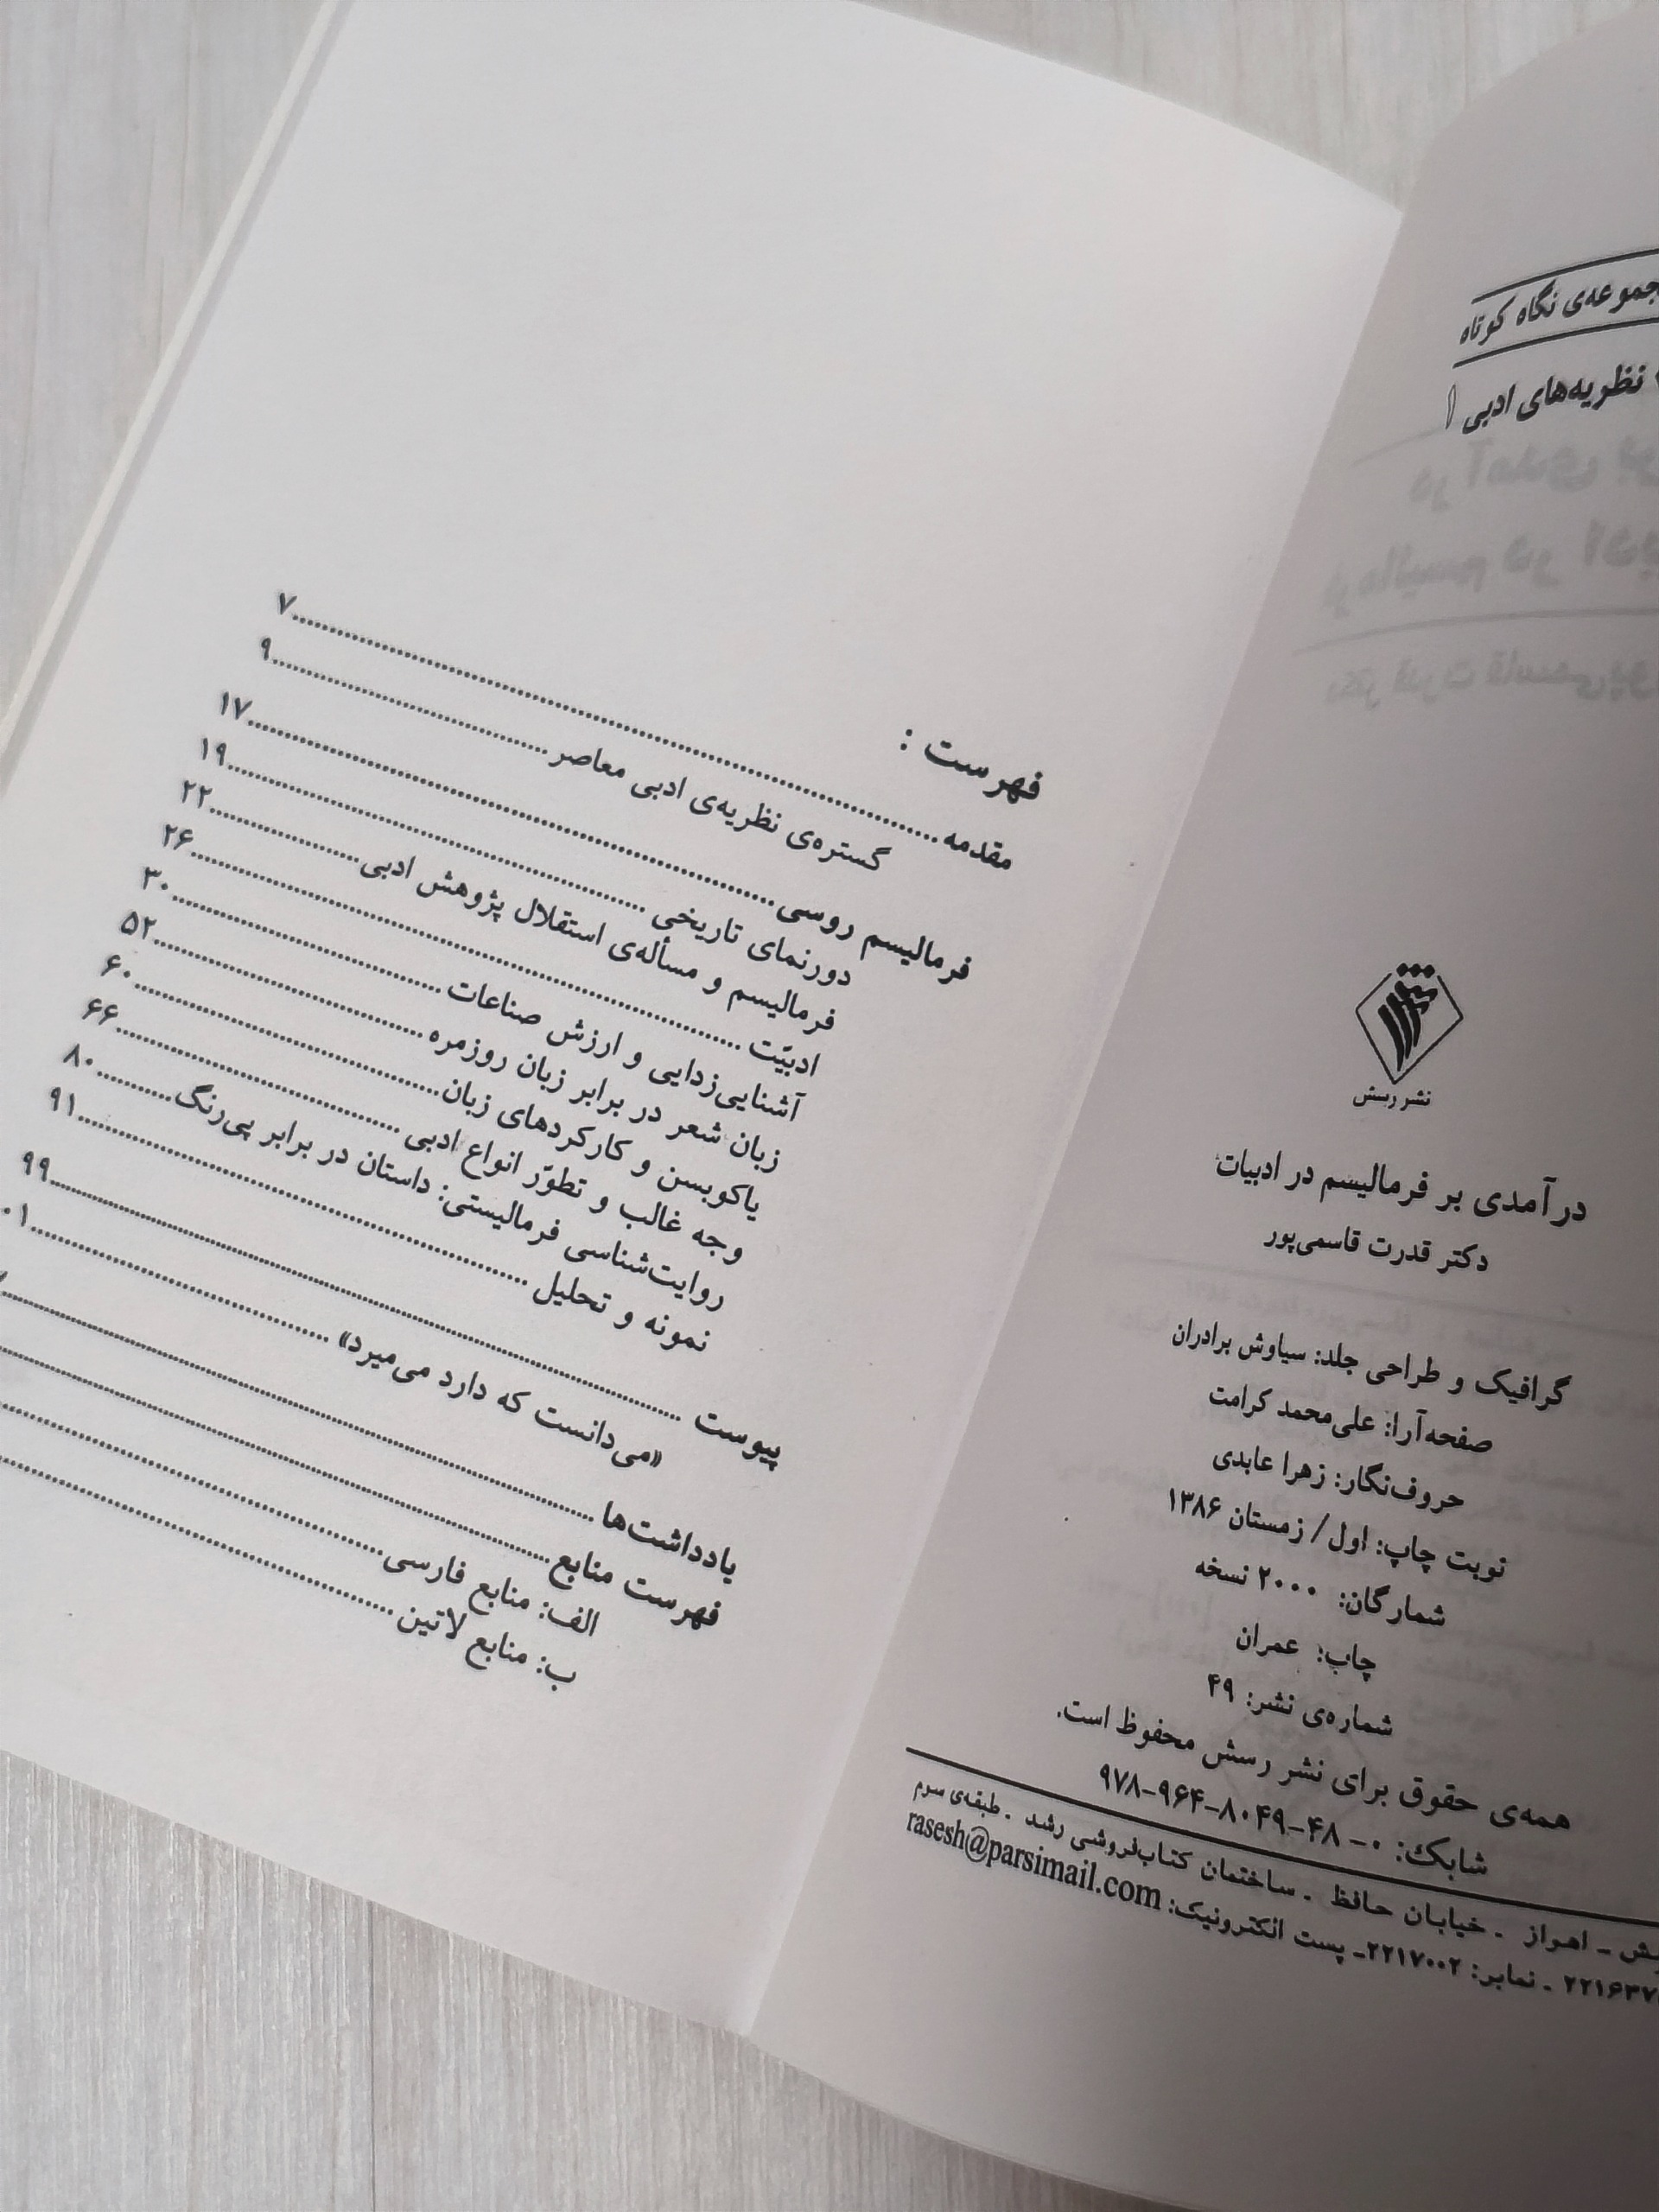 نگاه کوتاه
نظریه‌های ادبی
نشر رسش
درآمدی بر فرمالیسم در ادبیات
دکتر قدرت قاسمی‌پور
گرافیک و طراحی جلد: سیاوش برادران
صفحه‌آرا: علی‌محمد کرامت
حروف‌نگار: زهرا عابدی
نوبت چاپ: اول/ زمستان ۱۳۸۶
شمارگان: ۲۰۰۰ نسخه
چاپ: عمران
شماره‌ی نشر: ۴۹
همه‌ی حقوق برای نشر رسش محفوظ است.
شابک: ۰-۴۸-۸۰۴۹-۹۶۴-۹۷۸
ـ اهواز . خیابان حافظ . ساختمان کتاب‌فروشی رشد . طبقه‌ی سوم
. نمابر: ۲۲۱۷۰۰۲ـ پست الکترونیک: rasesh@parsimail.com
فهرست :
مقدمه..........۷
گستره‌ی نظریه‌ی ادبی معاصر..........۹
فرمالیسم روسی..........۱۷
دورنمای تاریخی..........۱۹
فرمالیسم و مسأله‌ی استقلال پژوهش ادبی..........۲۲
ادبیّت..........۲۶
آشنایی‌زدایی و ارزش صناعات..........۳۰
زبان شعر در برابر زبان روزمره..........۵۲
یاکوبسن و کارکردهای زبان..........۶۰
وجه غالب و تطوّر انواع ادبی..........۶۶
روایت‌شناسی فرمالیستی: داستان در برابر پی‌رنگ..........۸۰
نمونه و تحلیل..........۹۱
پیوست..........۹۹
«می‌دانست که دارد می‌میرد»..........
یادداشت‌ها..........
فهرست منابع..........
الف: منابع فارسی..........
ب: منابع لاتین..........